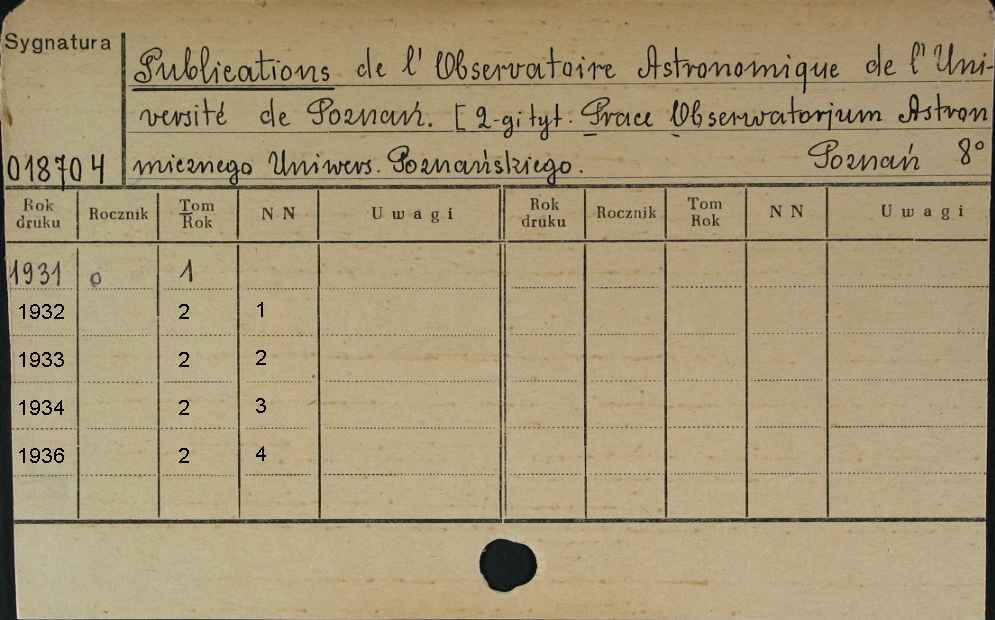 Sygnatura
Publications de l'Observatoire Astronomique de l'Uni-
versité de Poznań. [2-gi tyt: Prace Obserwatorjum Astron
018704 micznego Uniwers. Poznańskiego. Poznań 8°
Rok druku Rocznik Tom Rok NN Uwagi Rok druku Rocznik Tom Rok NN Uwagi
1931 o 1
1932 2 1
1933 2 2
1934 2 3
1936 2 4